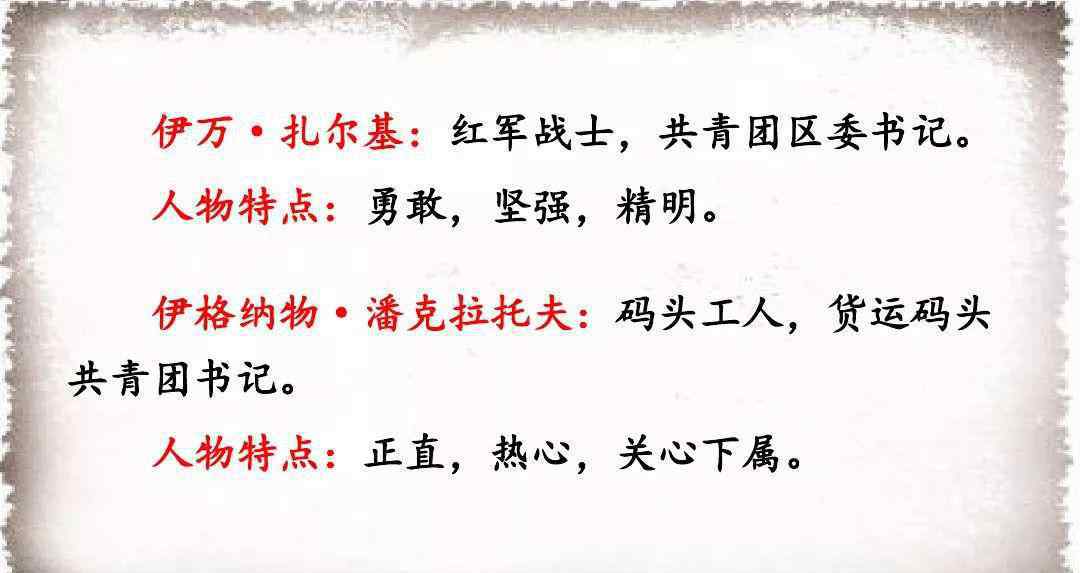 伊万·扎尔基：红军战士，共青团区委书记。
人物特点：勇敢，坚强，精明。
伊格纳物·潘克拉托夫：码头工人，货运码头
共青团书记。
人物特点：正直，热心，关心下属。